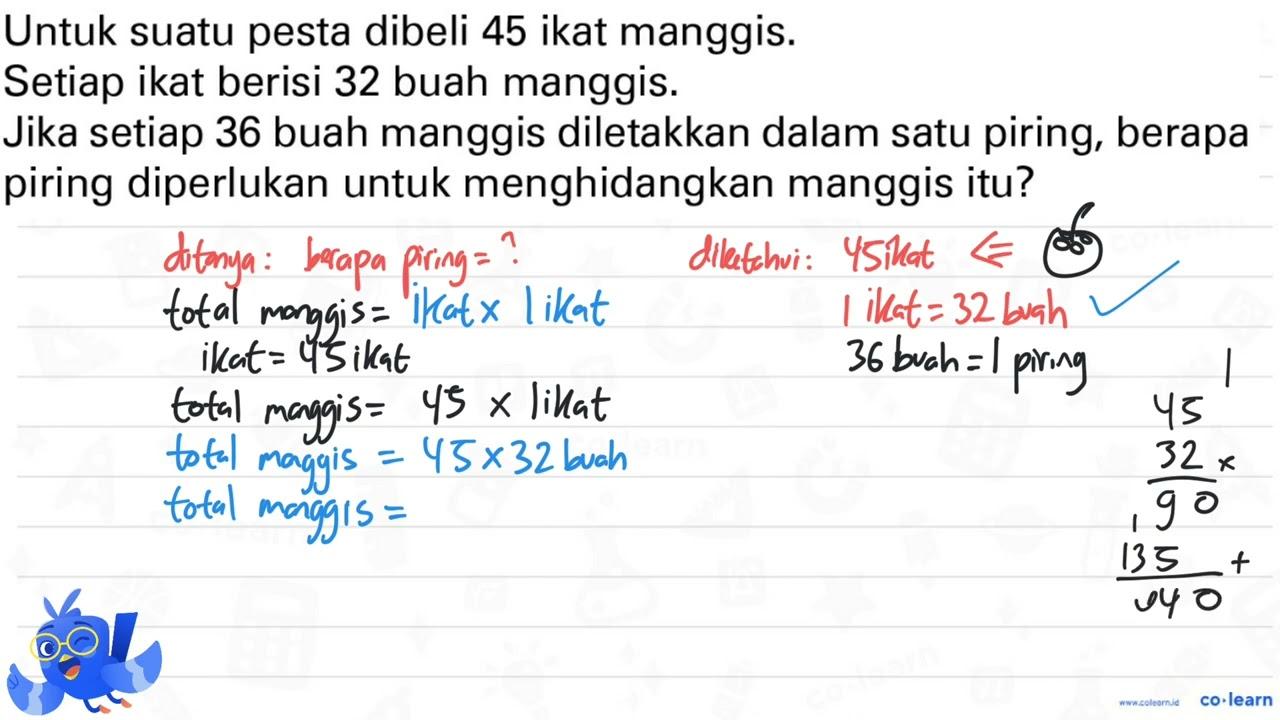 Untuk suatu pesta dibeli 45 ikat manggis.
Setiap ikat berisi 32 buah manggis.
Jika setiap 36 buah manggis diletakkan dalam satu piring, berapa
piring diperlukan untuk menghidangkan manggis itu?
ditanya: berapa piring = ?
total manggis = ikat x 1 ikat
ikat = 45 ikat
total manggis = 45 x 1 ikat
total manggis = 45 x 32 buah
total manggis =
diketahui: 45 ikat <=
1 ikat = 32 buah
36 buah = 1 piring
1
45
32 x
90
1
135 +
40
www.colearn.id co·learn